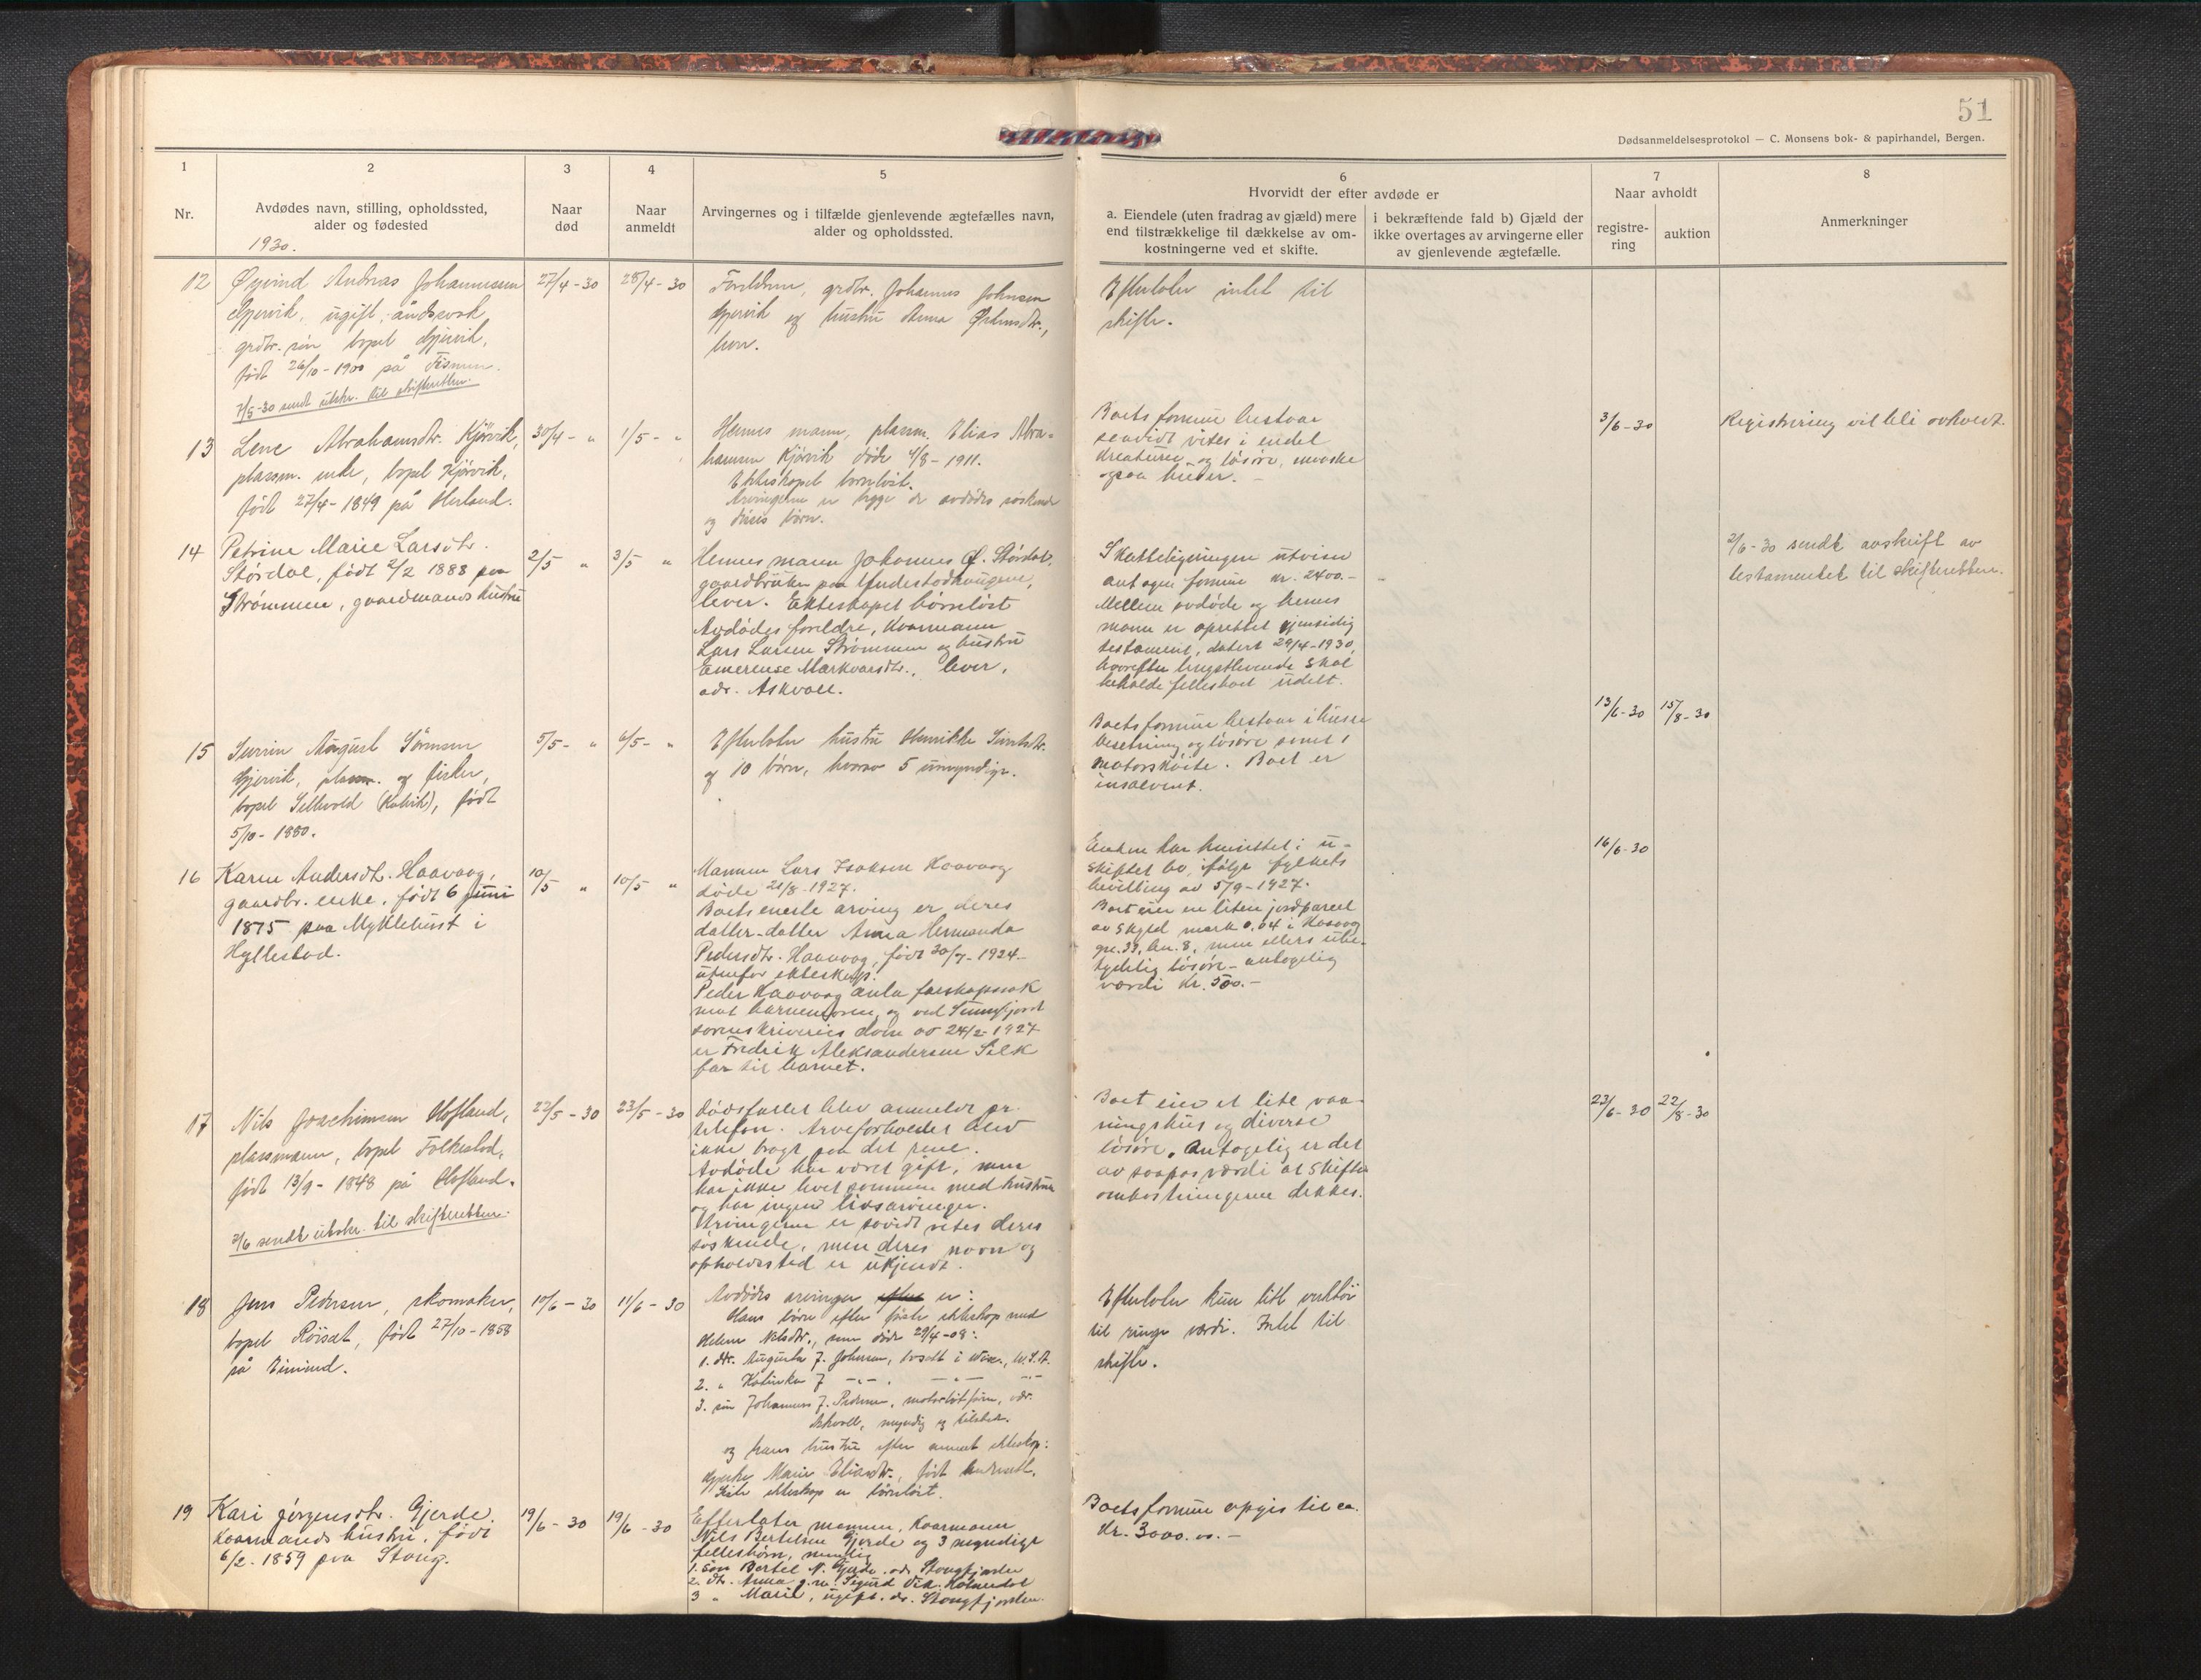 51
Dødsanmeldelsesprotokol — C. Monsens bok- & papirhandel, Bergen.
1
Nr.
2
Avdødes navn, stilling, opholdssted,
alder og fødested
1930.
3
Naar
død
4
Naar
anmeldt
5
Arvingernes og i tilfælde gjenlevende ægtefælles navn,
alder og opholdssted.
6
Hvorvidt der efter avdøde er
a. Eiendele (uten fradrag av gjæld) mere
end tilstrækkelige til dækkelse av om-
kostningerne ved et skifte.
i bekræftende fald b) Gjæld der
ikke overtages av arvingerne eller
av gjenlevende ægtefælle.
7
Naar avholdt
registre-
ring
auktion
8
Anmerkninger
12
Øyvind Andreas Johannessen
Gjervik, ugift, åndssvak,
grdbr. søn bopel Gjervik,
født 26/10-1900 på
7/5-30 sendt utskr. til skifteretten.
27/4-30
28/4-30
Foreldrene, grdbr. Johannes Johnsen
Gjervik og hustru Anna
Efterlater intet til
skifte.
13
Lene Abrahamsdtr. Kjørvik,
plassm. enke, bopel Kjørvik,
født 27/4-1849 på Herland.
30/4- "
1/5- "
Hennes mann, plassm. Elias Abra-
hamsen Kjørvik døde 4/8-1911.
Ekteskapet barnløst.
Arvingerne er begge de avdødes søskende
og disses børn.
Boets formue bestaar
saavidt vites i endel
kreaturer og løsøre, maaske
ogsaa huser. -
3/6-30
Registrering vil bli avholdt.
14
Petrine Marie Larsdtr.
Størdal, født 2/2 1888 paa
Strømmen, gaardmands hustru
2/5 "
3/5 "
Hennes mann Johannes O. Størdal,
gaardbruker paa Yndestadhaugene,
lever. Ekteskapet børnløst
Avdødes foreldre, kaarmann
Lars Larsen Strømmen og hustru
Emerense Markvarsdtr., lever,
adr. Askvoll.
Skatteligningen utviser
antagen formue kr. 2400.-
Mellem avdøde og hennes
mann er oprettet gjensidig
testament, datert 29/4-1930,
hvorefter lengstlevende skal
beholde fellesboet udelt.
2/6-30 sendt avskrift av
testamentet til skifteretten.
15
Severin August Sørensen
Gjervik, plassm. og fisker,
bopel Sellevold født
5/10-1880.
5/5- "
6/5- "
Efterlater hustru Henrikke
og 10 børn, hvorav 5 umyndige.
Boets formue bestaar i huser
besetning og løsøre samt 1
motorskøite. Boet er
insolvent.
13/6-30
15/8-30
16
Karen Andersdtr. Haavaag,
gaardbr. enke, født 6 juni
1875 paa Myklebust i
Hyllestad.
10/5 "
10/5 "
Mannen Lars Isaksen Haavaag
døde 21/8-1927.
Boets eneste arving er deres
datter-datter Anna Hermanda
Pedersdtr. Haavaag, født 30/7-1924
utenfor ekteskap.
Peder Haavaag anla farskapssak
mot barnemoren, og ved Sunnfjord
sorenskriveries dom av 24/2-1927
er Fredrik Aleksandersen Silk
far til barnet.
Enken har hensittet i u-
skiftet bo, ifølge fylkets
bevilling av 5/9-1927.
Boet eier en liten jordparcel
av skyld mark 0.04 i Haavaag
gnr. 33, bnr. 8, men ellers ube-
tydelig løsøre - antagelig
værdi kr. 500.-
16/6-30
17
Nils Joachimsen Hofland,
plassmann, bopel Folkestad,
født 13/9-1848 på Hofland.
2/6 sendt utskr. til skifteretten.
22/5-30
23/5-30
Dødsfallet blev anmeldt pr.
telefon. Arveforholdet blev
ikke bragt paa det rene.
Avdøde har været gift, men
har ikke levet sammen med hustruen
og har ingen livsarvinger.
Arvingerne er savidt vites deres
søskende, men deres navn og
opholdssted er ukjendt.
Boet eier et lite vaa-
ningshus og diverse
løsøre. Antagelig er det
av saapas værdi at skifte
omkostningerne dekkes.
23/6-30
22/8-30
18
Jens Pedersen, skomaker,
bopel Røiset, født 27/10-1858
på
10/6-30
11/6-30
Avdødes arvinger efter er:
Hans børn efter første ekteskap med
Helene Nilsdtr., som døde 29/4-08:
1. dtr. Augusta J. Johnsen, bosatt i U.S.A.
2. " Katinka J -"- . -"- -"-
3. søn Johannes J. Pedersen, motorbåtfører, adr.
Askvoll, myndig og tilstede.
og hans hustru efter annet ekteskap:
Gjertine Marie Eliasdtr., født
Siste ekteskap er børnløst.
Efterlater kun litt verktøi
til ringe værdi. Intet til
skifte.
19
Kari Jørgensdtr. Gjerde,
kaarmands hustru, født
6/2-1859 paa Stang.
19/6-30
19/6-30
Efterlater mannen, kaarmann
Nils Bertelsen Gjerde og 3 myndige
fellesbørn, nemlig
1. søn Bertel N. Gjerde, adr. Stongfjorden
2. dtr. Anna g.m. Sigurd Vik, Holmedal
3 " Marie, ugift, adr. Stongfjorden.
Boets formue opgis til ca.
kr. 3000.00.-